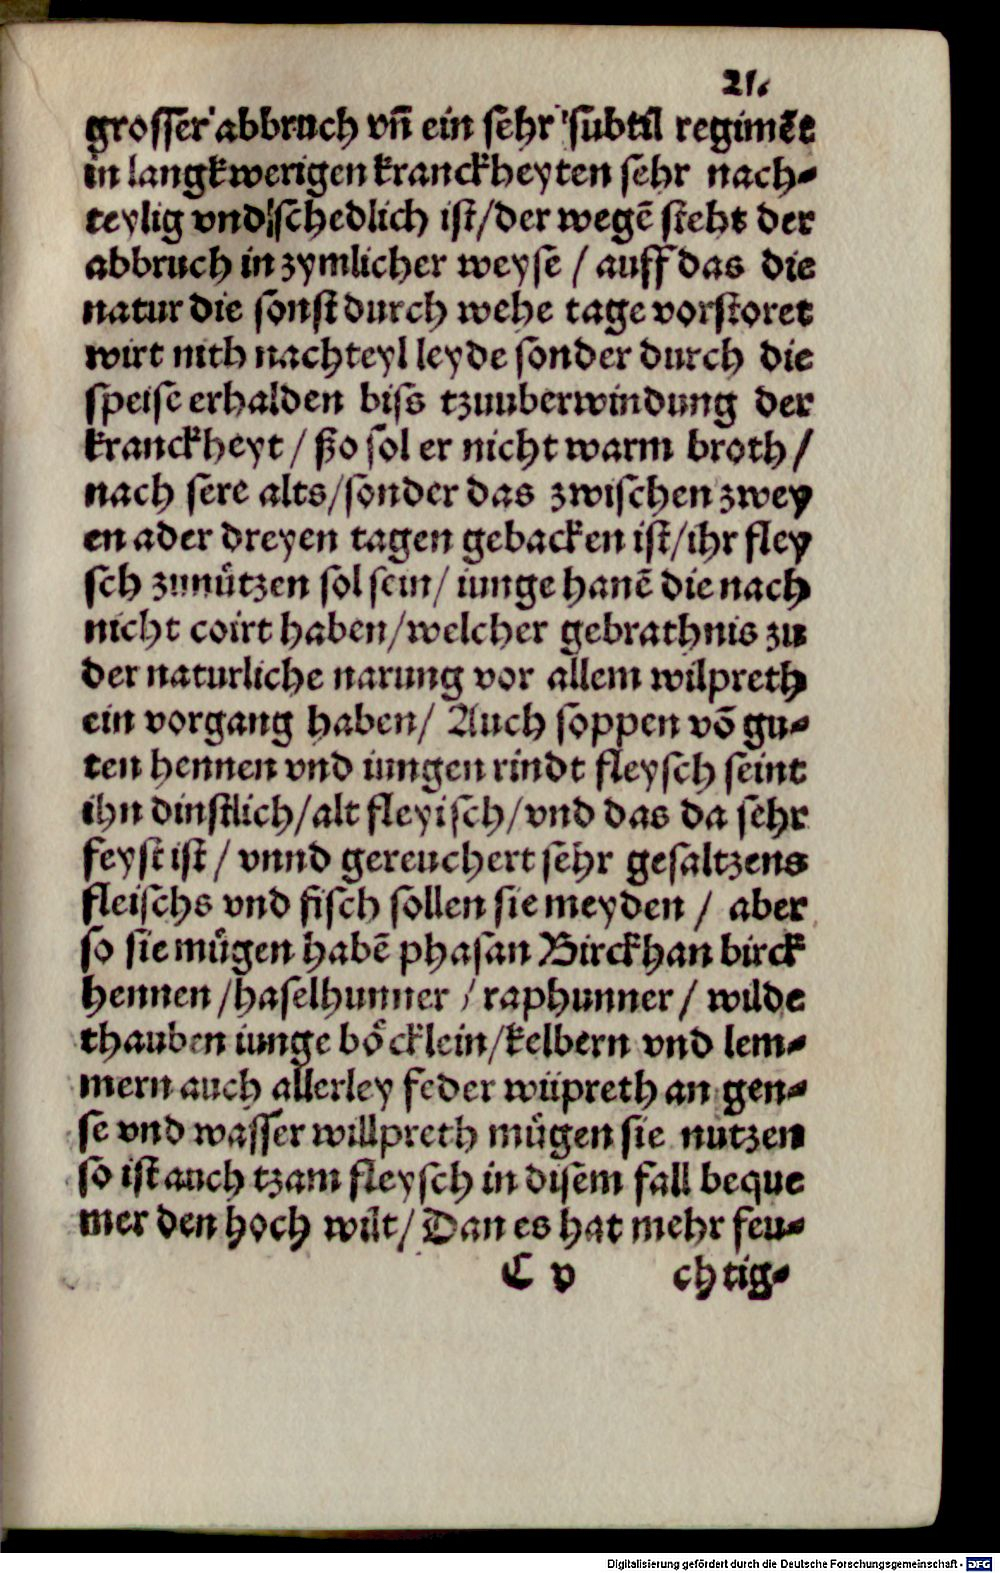 21.
grosser abbruch vñ ein sehr subtil regimẽt
in langkwerigen kranckheyten sehr nach-
teylig vnd schedlich ist/der wegẽ steht der
abbruch in zymlicher weyse / auff das die
natur die sonst durch wehe tage vorstoret
wirt nith nachteyl leyde sonder durch die
speise erhalden biss tzuuberwindung der
kranckheyt / ßo sol er nicht warm broth /
nach sere alts/sonder das zwischen zwey
en ader dreyen tagen gebacken ist/ihr fley
sch zunuͤtzen sol sein/ iunge hanẽ die nach
nicht coirt haben/welcher gebrathnis zu
der naturliche narung vor allem wilpreth
ein vorgang haben/ Auch soppen võ gu-
ten hennen vnd iungen rindt fleysch seint
ihn dinstlich/alt fleyisch/vnd das da sehr
feyst ist / vnnd gereuchert sehr gesaltzens
fleischs vnd fisch sollen sie meyden / aber
so sie muͤgen habẽ phasan Birckhan birck
hennen /haselhunner / raphunner / wilde
thauben iunge boͤcklein/kelbern vnd lem-
mern auch allerley feder wiipreth an gen-
se vnd wasser willpreth muͤgen sie nutzen
so ist auch tzam fleysch in disem fall beque
mer den hoch wilt/ Dan es hat mehr feu-
C v chtig-
Digitalisierung gefördert durch die Deutsche Forschungsgemeinschaft - DFG